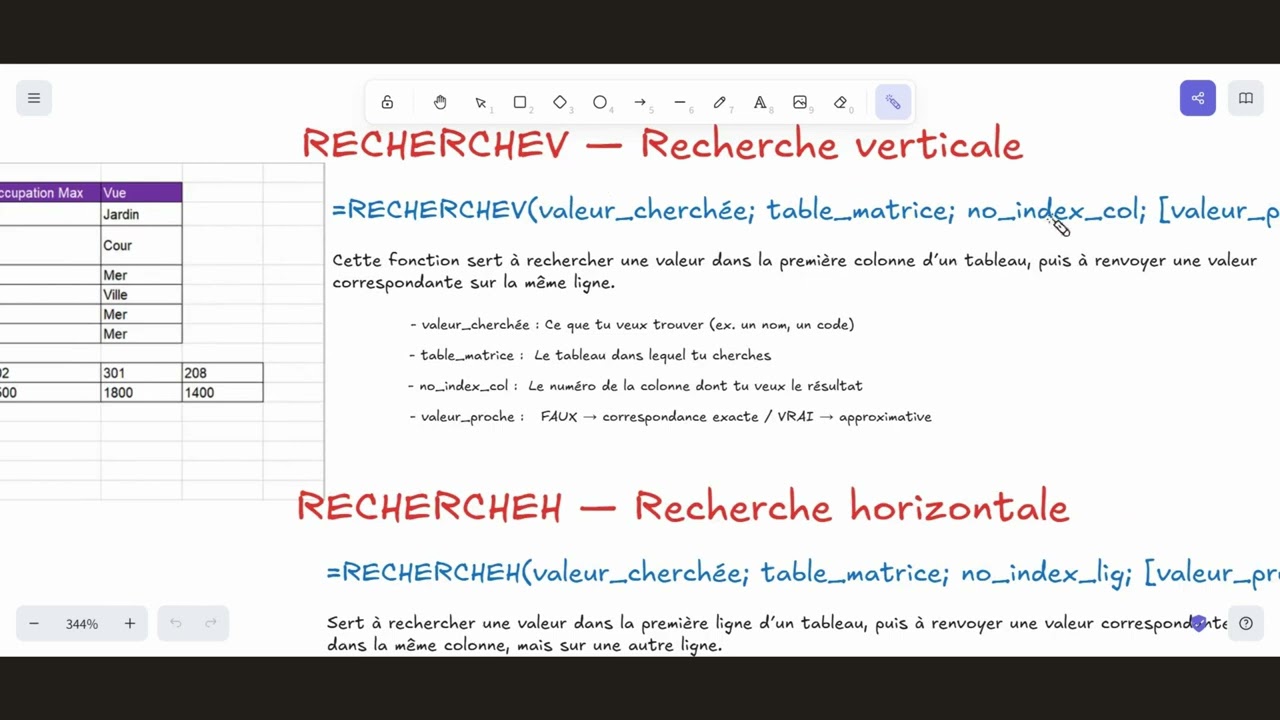 1
2
3
4
5
6
7
8
9
0
RECHERCHEV — Recherche verticale
ccupation Max Vue
Jardin
Cour
Mer
Ville
Mer
Mer
02 301 208
500 1800 1400
=RECHERCHEV(valeur_cherchée; table_matrice; no_index_col; [valeur_p
Cette fonction sert à rechercher une valeur dans la première colonne d'un tableau, puis à renvoyer une valeur
correspondante sur la même ligne.
- valeur_cherchée : Ce que tu veux trouver (ex. un nom, un code)
- table_matrice : Le tableau dans lequel tu cherches
- no_index_col : Le numéro de la colonne dont tu veux le résultat
- valeur_proche : FAUX → correspondance exacte / VRAI → approximative
RECHERCHEH — Recherche horizontale
=RECHERCHEH(valeur_cherchée; table_matrice; no_index_lig; [valeur_pro
Sert à rechercher une valeur dans la première ligne d'un tableau, puis à renvoyer une valeur correspondante
dans la même colonne, mais sur une autre ligne.
344%